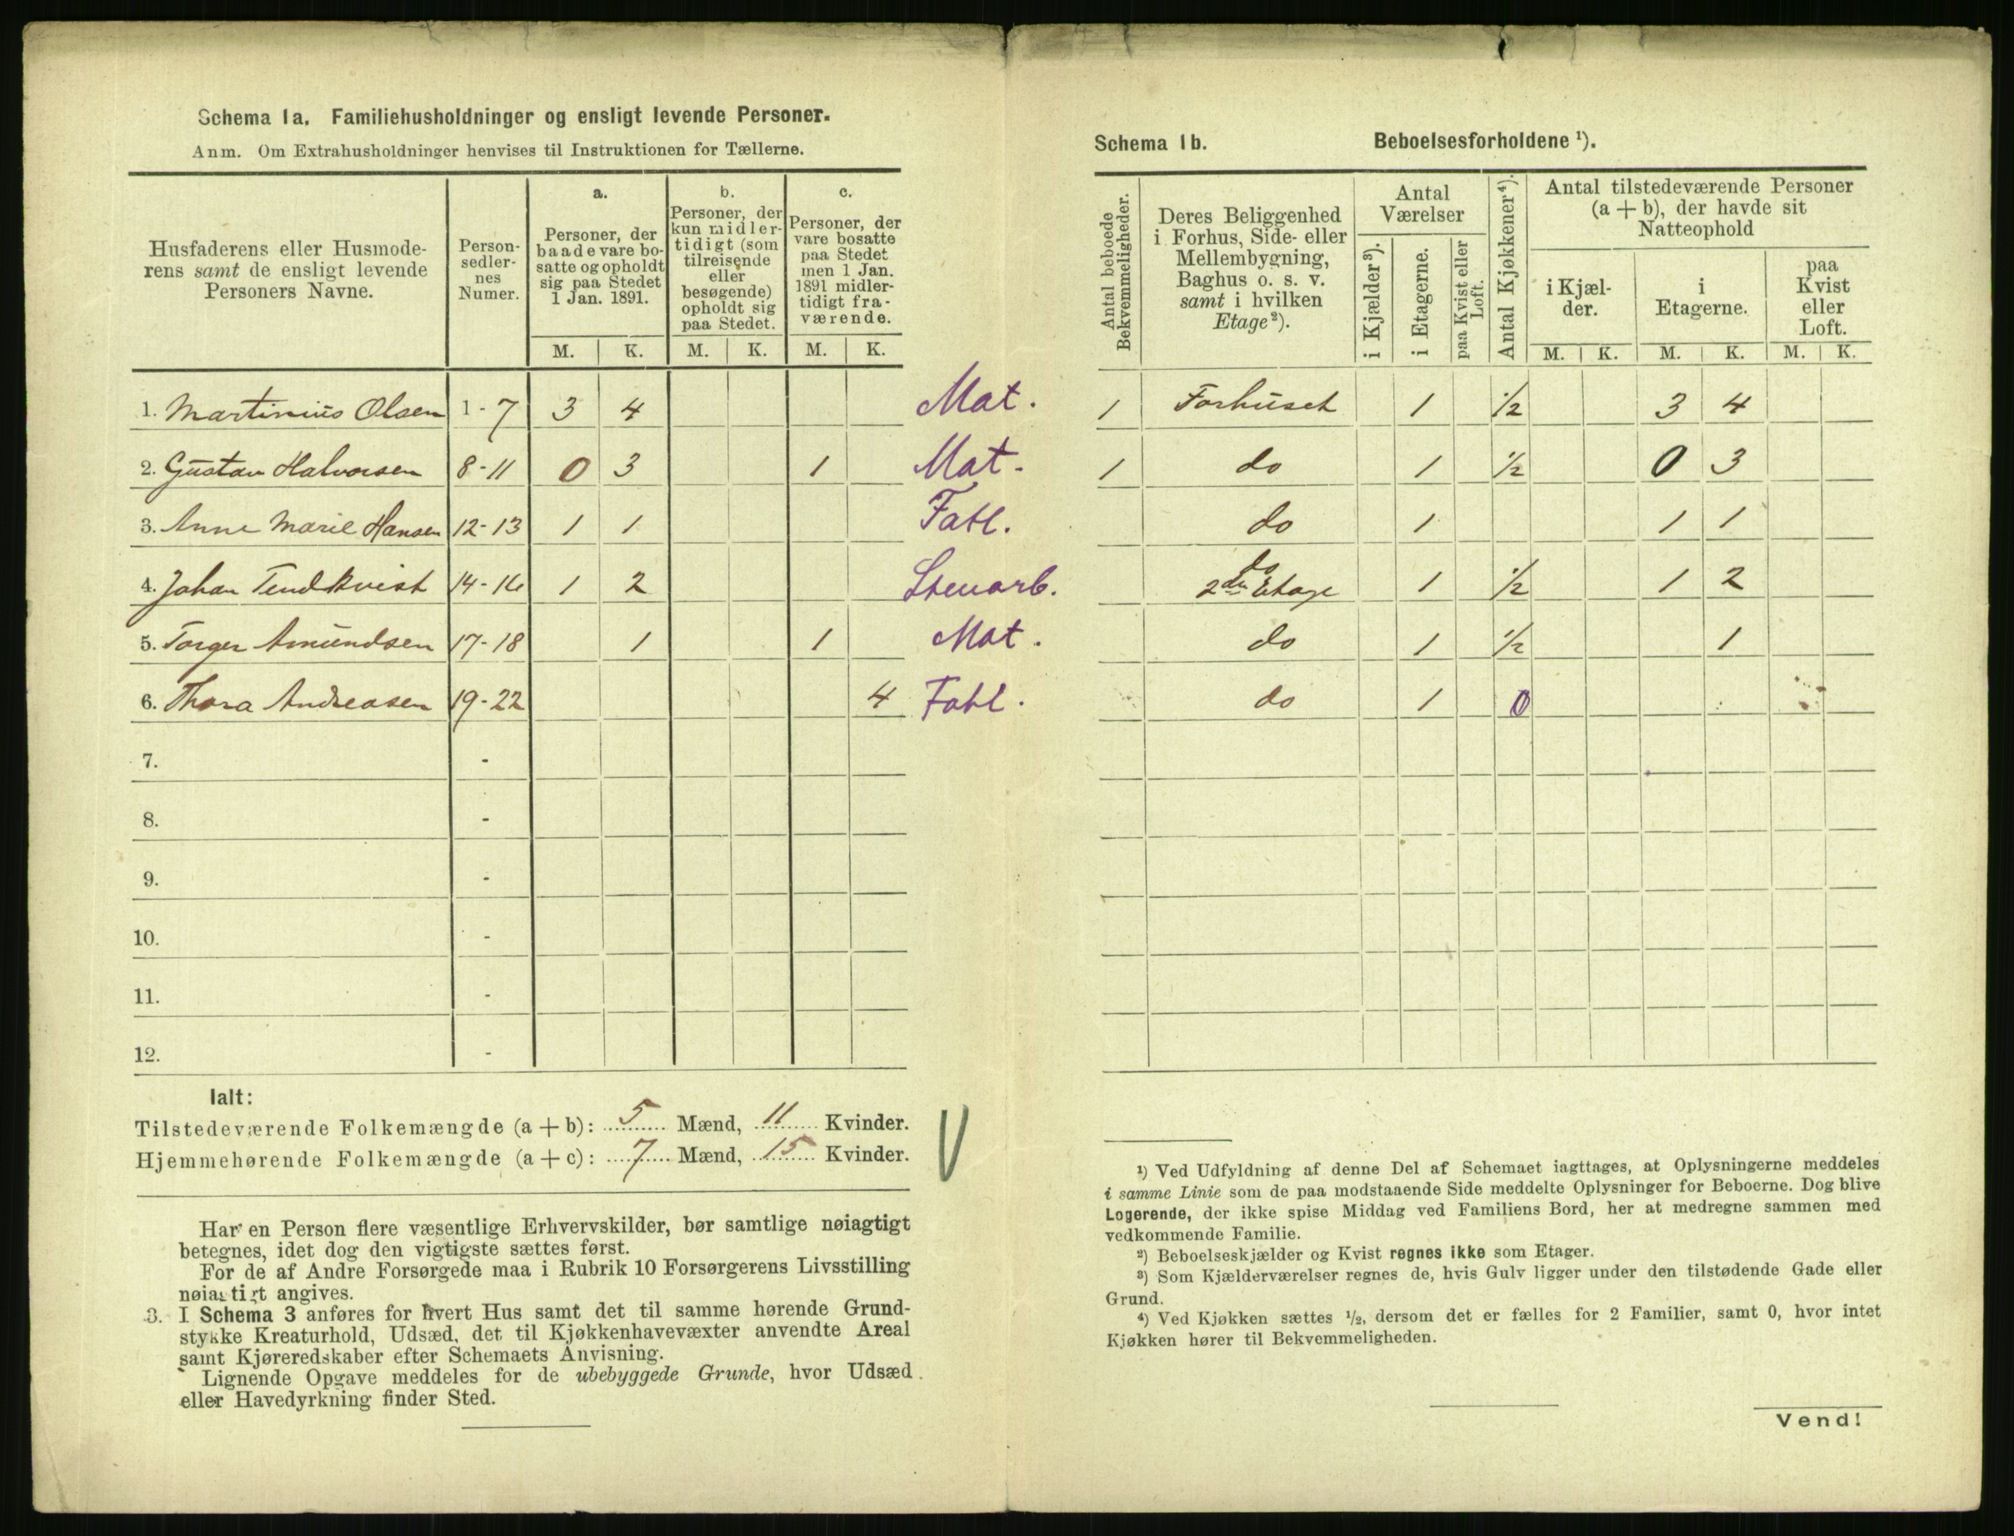 Schema 1a. Familiehusholdninger og ensligt levende Personer.
Anm. Om Extrahusholdninger henvises til Instruktionen for Tællerne.
Husfaderens eller Husmode-
rens samt de ensligt levende
Personers Navne.
Person-
sedler-
nes
Numer.
a.
Personer, der
baade vare bo-
satte og opholdt
sig paa Stedet
1 Jan. 1891.
b.
Personer, der
kun midler-
tidigt (som
tilreisende
eller
besøgende)
opholdt sig
paa Stedet.
c.
Personer, der
vare bosatte
paa Stedet
men 1 Jan.
1891 midler-
tidigt fra-
værende.
M. K. M. K. M. K.
1. Martinius Olsen 1-7 3 4 Mat.
2. Gustav Halvorsen 8-11 0 3 1 Mat.
3. Anne Marie Hansen 12-13 1 1 Fatl.
4. Johan Tendkvist 14-16 1 2 Stenarb.
5. Torger Amundsen 17-18 1 1 Mat.
6. Thora Andreasen 19-22 4 Fatl.
7. -
8. -
9. -
10. -
11. -
12. -
Ialt:
Tilstedeværende Folkemængde (a+b): 5 Mænd, 11 Kvinder.
Hjemmehørende Folkemængde (a+c): 7 Mænd, 15 Kvinder.
Har en Person flere væsentlige Erhvervskilder, bør samtlige nøiagtigt
betegnes, idet dog den vigtigste sættes først.
For de af Andre Forsørgede maa i Rubrik 10 Forsørgerens Livsstilling
nøiagtigt angives.
3. I Schema 3 anføres for hvert Hus samt det til samme hørende Grund-
stykke Kreaturhold, Udsæd, det til Kjøkkenhavevæxter anvendte Areal
samt Kjøreredskaber efter Schemaets Anvisning.
Lignende Opgave meddeles for de ubebyggede Grunde, hvor Udsæd
eller Havedyrkning finder Sted.
Schema 1b. Beboelsesforholdene ¹).
Antal beboede
Bekvemmeligheder.
Deres Beliggenhed
i Forhus, Side- eller
Mellembygning,
Baghus o. s. v.
samt i hvilken
Etage²).
Antal
Værelser
i Kjælder³).
i Etagerne.
paa Kvist eller
Loft.
Antal Kjøkkener⁴).
Antal tilstedeværende Personer
(a+b), der havde sit
Natteophold
i Kjæl-
der.
i
Etagerne.
paa
Kvist
eller
Loft.
M. K. M. K. M. K.
1 Forhuset 1 ½ 3 4
1 do 1 ½ 0 3
do 1 1 1
do
2den Etage 1 ½ 1 2
do 1 ½ 1
do 1 0
¹) Ved Udfyldning af denne Del af Schemaet iagttages, at Oplysningerne meddeles
i samme Linie som de paa modstaaende Side meddelte Oplysninger for Beboerne. Dog blive
Logerende, der ikke spise Middag ved Familiens Bord, her at medregne sammen med
vedkommende Familie.
²) Beboelseskjælder og Kvist regnes ikke som Etager.
³) Som Kjælderværelser regnes de, hvis Gulv ligger under den tilstødende Gade eller
Grund.
⁴) Ved Kjøkken sættes ½, dersom det er fælles for 2 Familier, samt 0, hvor intet
Kjøkken hører til Bekvemmeligheden.
Vend!